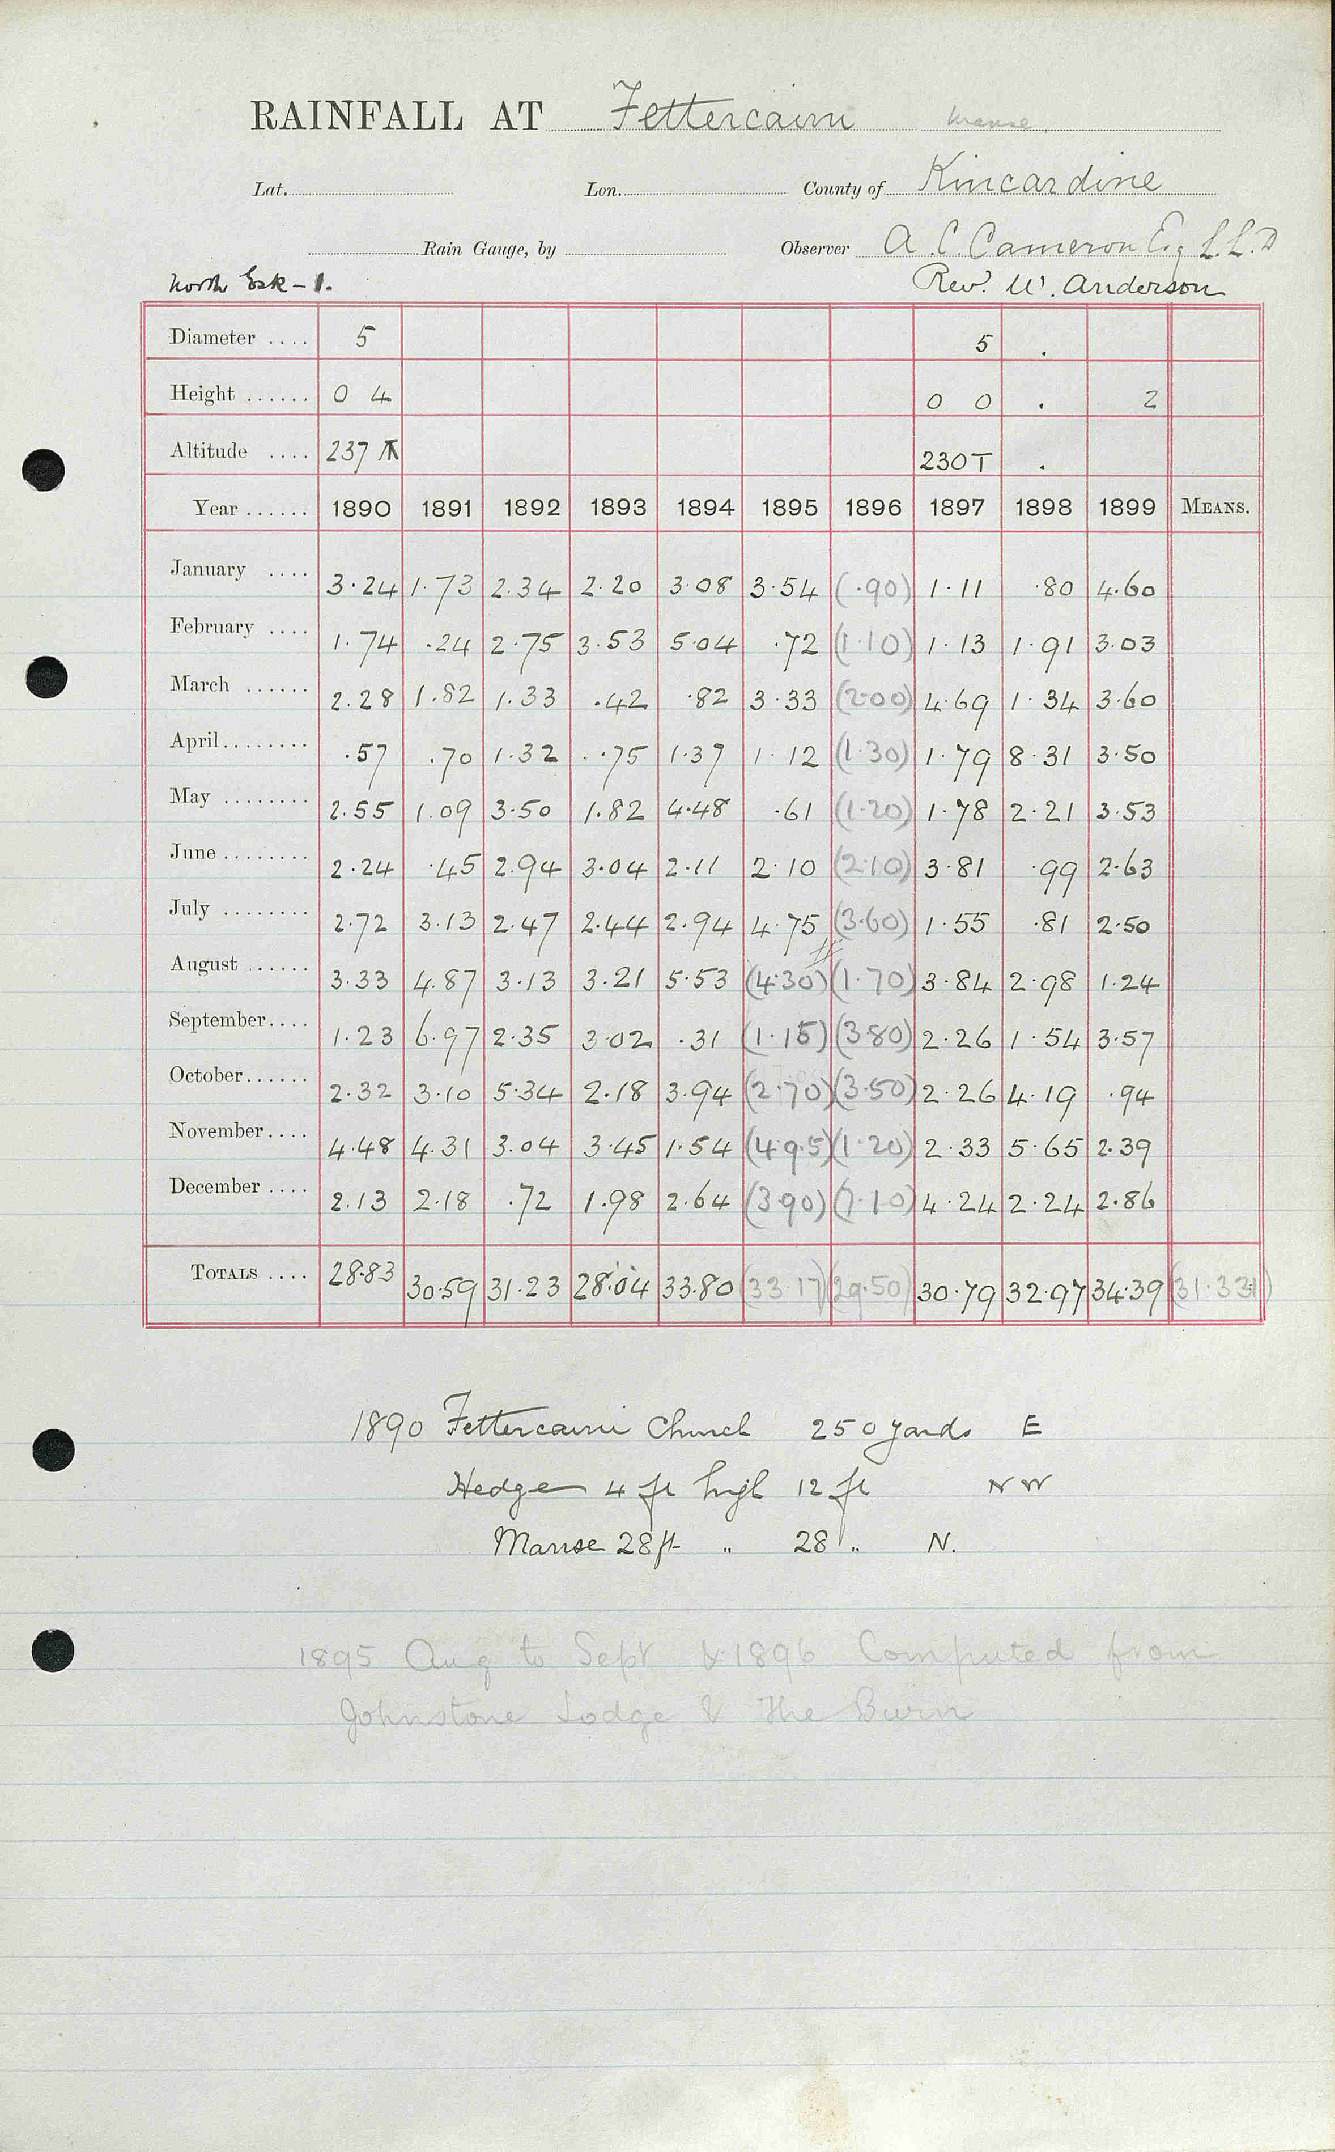 RAINFALL AT Fettercairn Manse.
Lat. Lon. County of Kincardine
Rain Gauge, by Observer A. C. Cameron Esq L.L.D
North Esk - 1. Rev. W. Anderson
Diameter .... 5 5 .
Height ...... 0 4 0 0 . 2
Altitude .... 237 230T .
Year ...... 1890 1891 1892 1893 1894 1895 1896 1897 1898 1899 MEANS.
January .... 3.24 1.73 2.34 2.20 3.08 3.54 (.90) 1.11 .80 4.60
February .... 1.74 .24 2.75 3.53 5.04 .72 (1.10) 1.13 1.91 3.03
March ...... 2.28 1.82 1.33 .42 .82 3.33 (2.00) 4.69 1.34 3.60
April........ .57 .70 1.32 .75 1.37 1.12 (1.30) 1.79 8.31 3.50
May ........ 2.55 1.09 3.50 1.82 4.48 .61 (1.20) 1.78 2.21 3.53
June ........ 2.24 .45 2.94 3.04 2.11 2.10 (2.10) 3.81 .99 2.63
July ........ 2.72 3.13 2.47 2.44 2.94 4.75 (3.60) 1.55 .81 2.50
August ...... 3.33 4.87 3.13 3.21 5.53 (4.30) (1.70) 3.84 2.98 1.24
September.... 1.23 6.97 2.35 3.02 .31 (1.15) (3.80) 2.26 1.54 3.57
October...... 2.32 3.10 5.34 2.18 3.94 (2.70) (3.50) 2.26 4.19 .94
November.... 4.48 4.31 3.04 3.45 1.54 (4.95) (1.20) 2.33 5.65 2.39
December .... 2.13 2.18 .72 1.98 2.64 (3.90) (7.10) 4.24 2.24 2.86
TOTALS .... 28.83 30.59 31.23 28.04 33.80 (33.17) (29.50) 30.79 32.97 34.39 (31.331)
1890 Fettercairn Church 250 yards E
Hedge 4 ft high 12 ft NW
Manse 28 ft " 28 " N.
1895 Aug to Sept & 1896 Computed from
Johnstone Lodge & The Burn